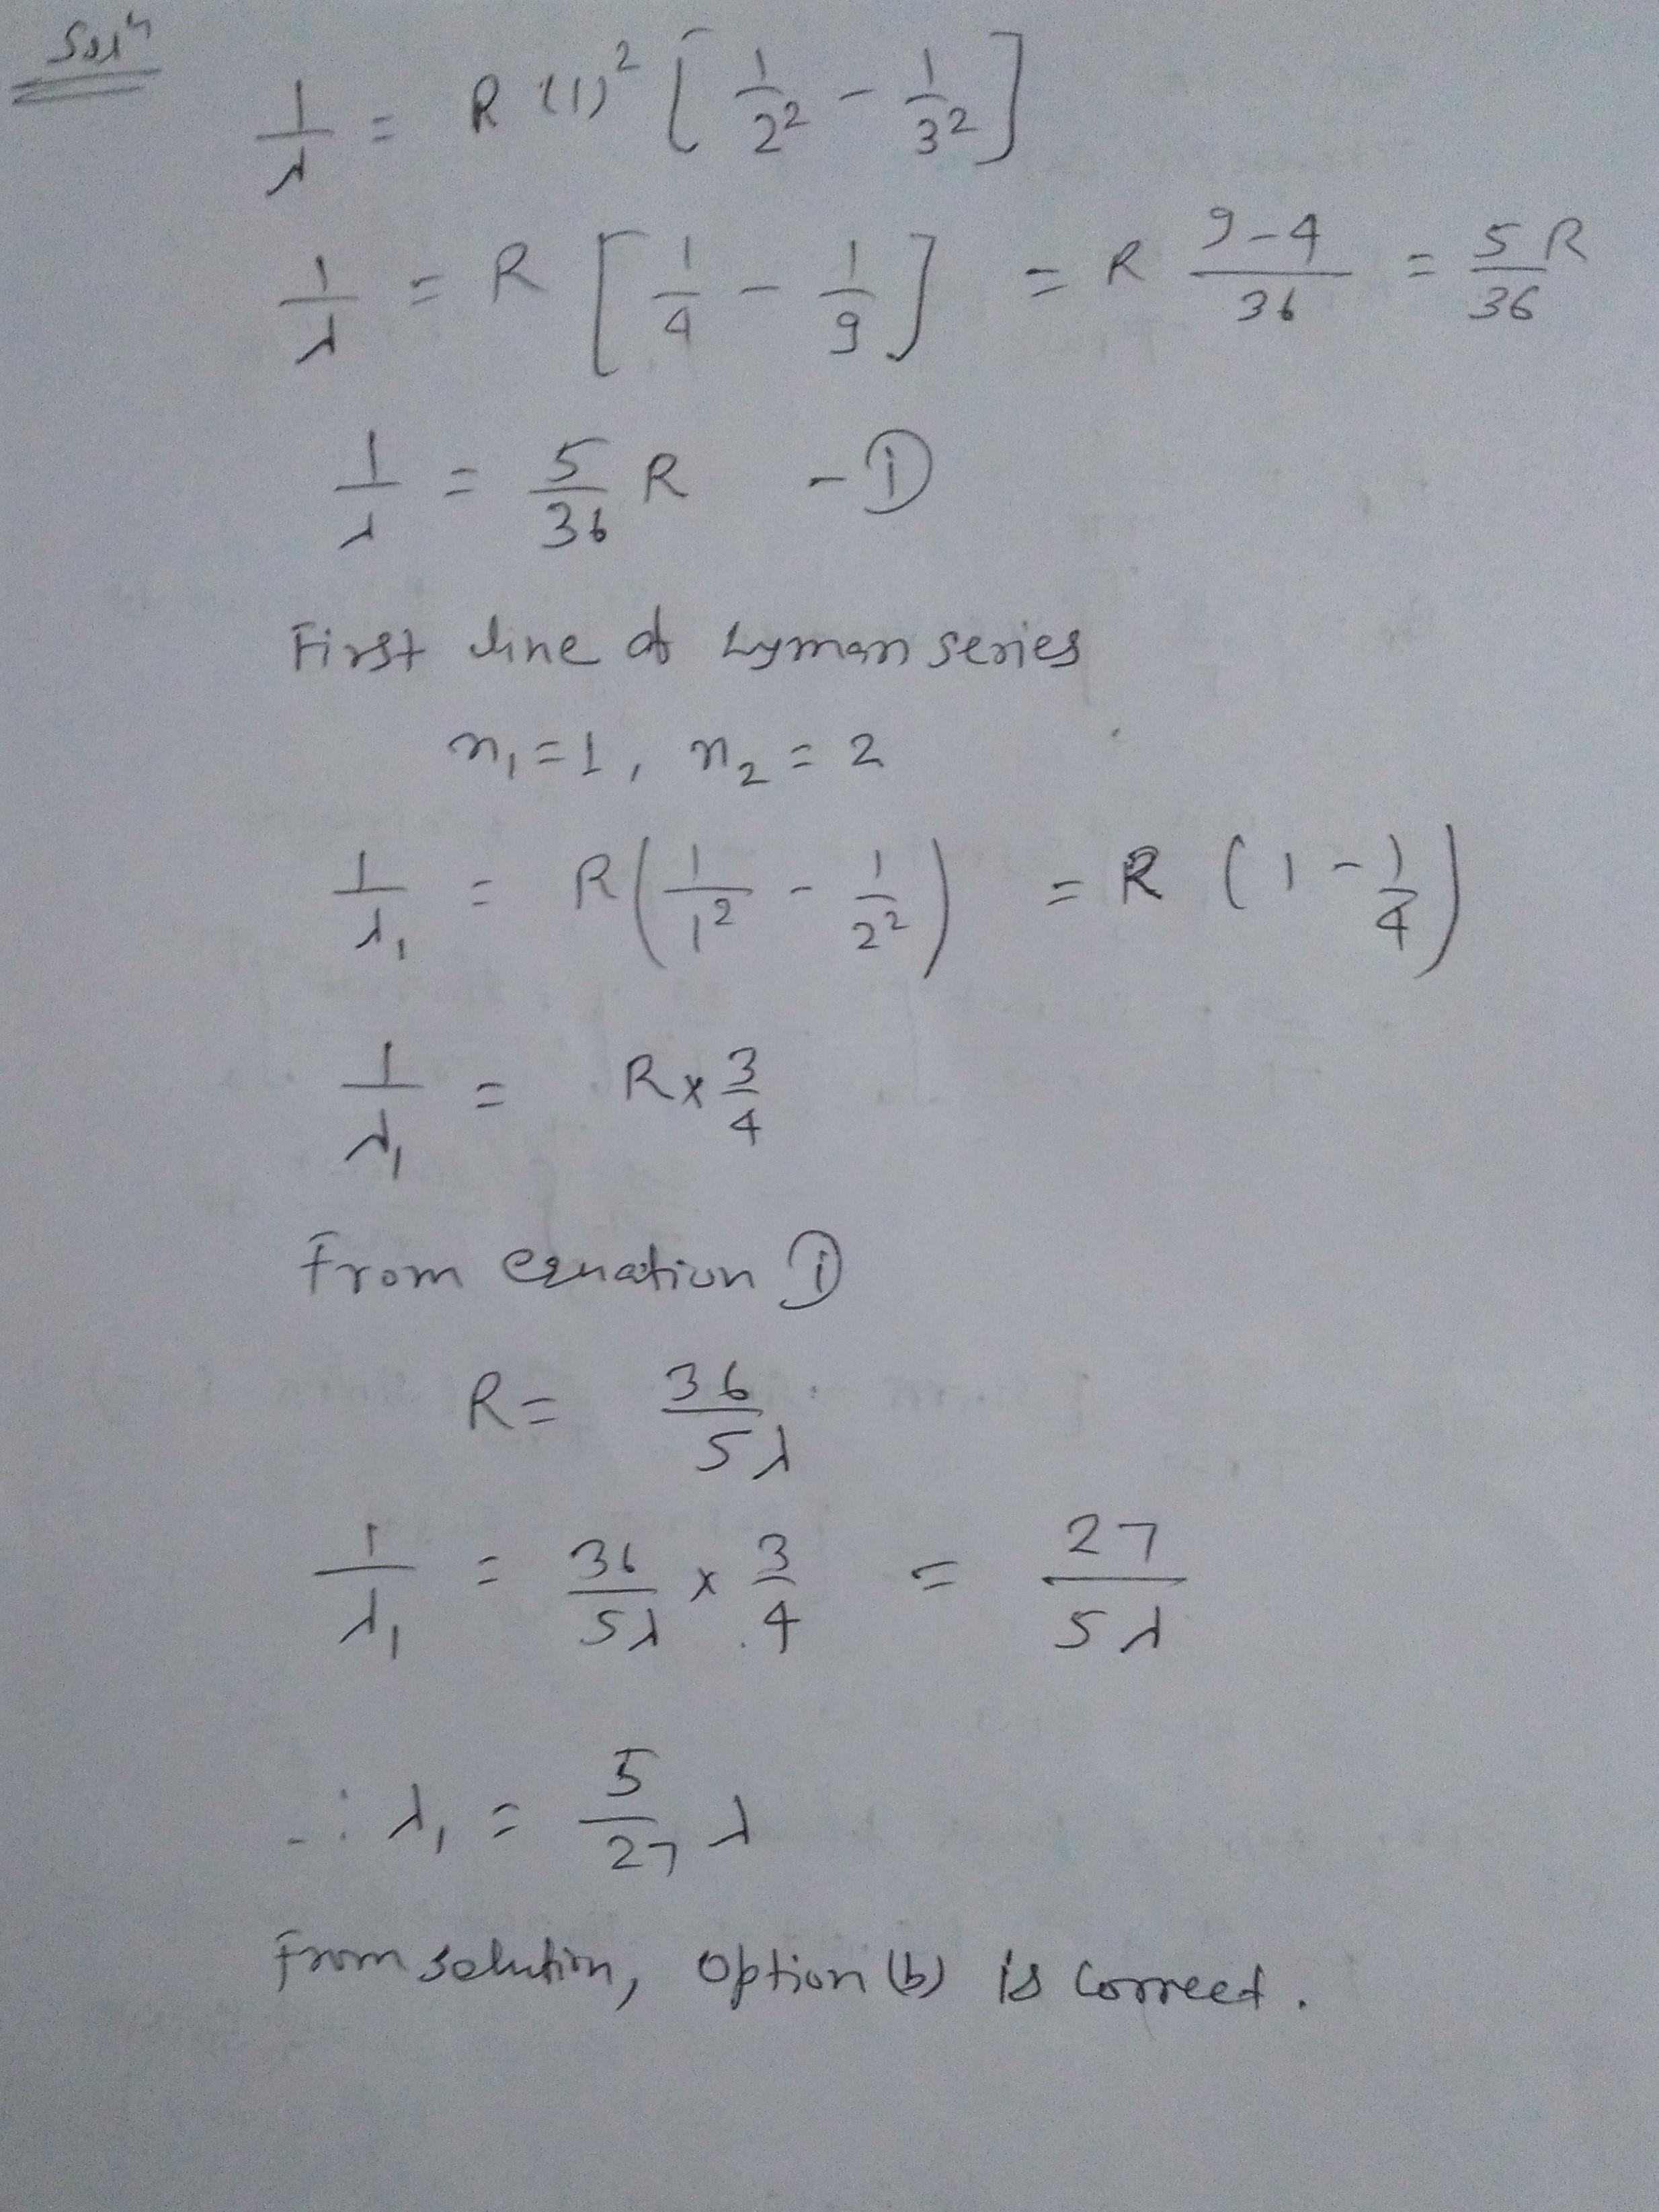 Solⁿ
1/λ = R (1)² [1/2² - 1/3²]
1/λ = R [1/4 - 1/9] = R (9-4)/36 = 5R/36
1/λ = 5/36 R - ①
First line of Lyman series
n₁ = 1, n₂ = 2
1/λ₁ = R(1/1² - 1/2²) = R (1 - 1/4)
1/λ₁ = R × 3/4
From equation ①
R = 36/5λ
1/λ₁ = 36/5λ × 3/4 = 27/5λ
∴ λ₁ = 5/27 λ
From solution, Option (b) is correct.